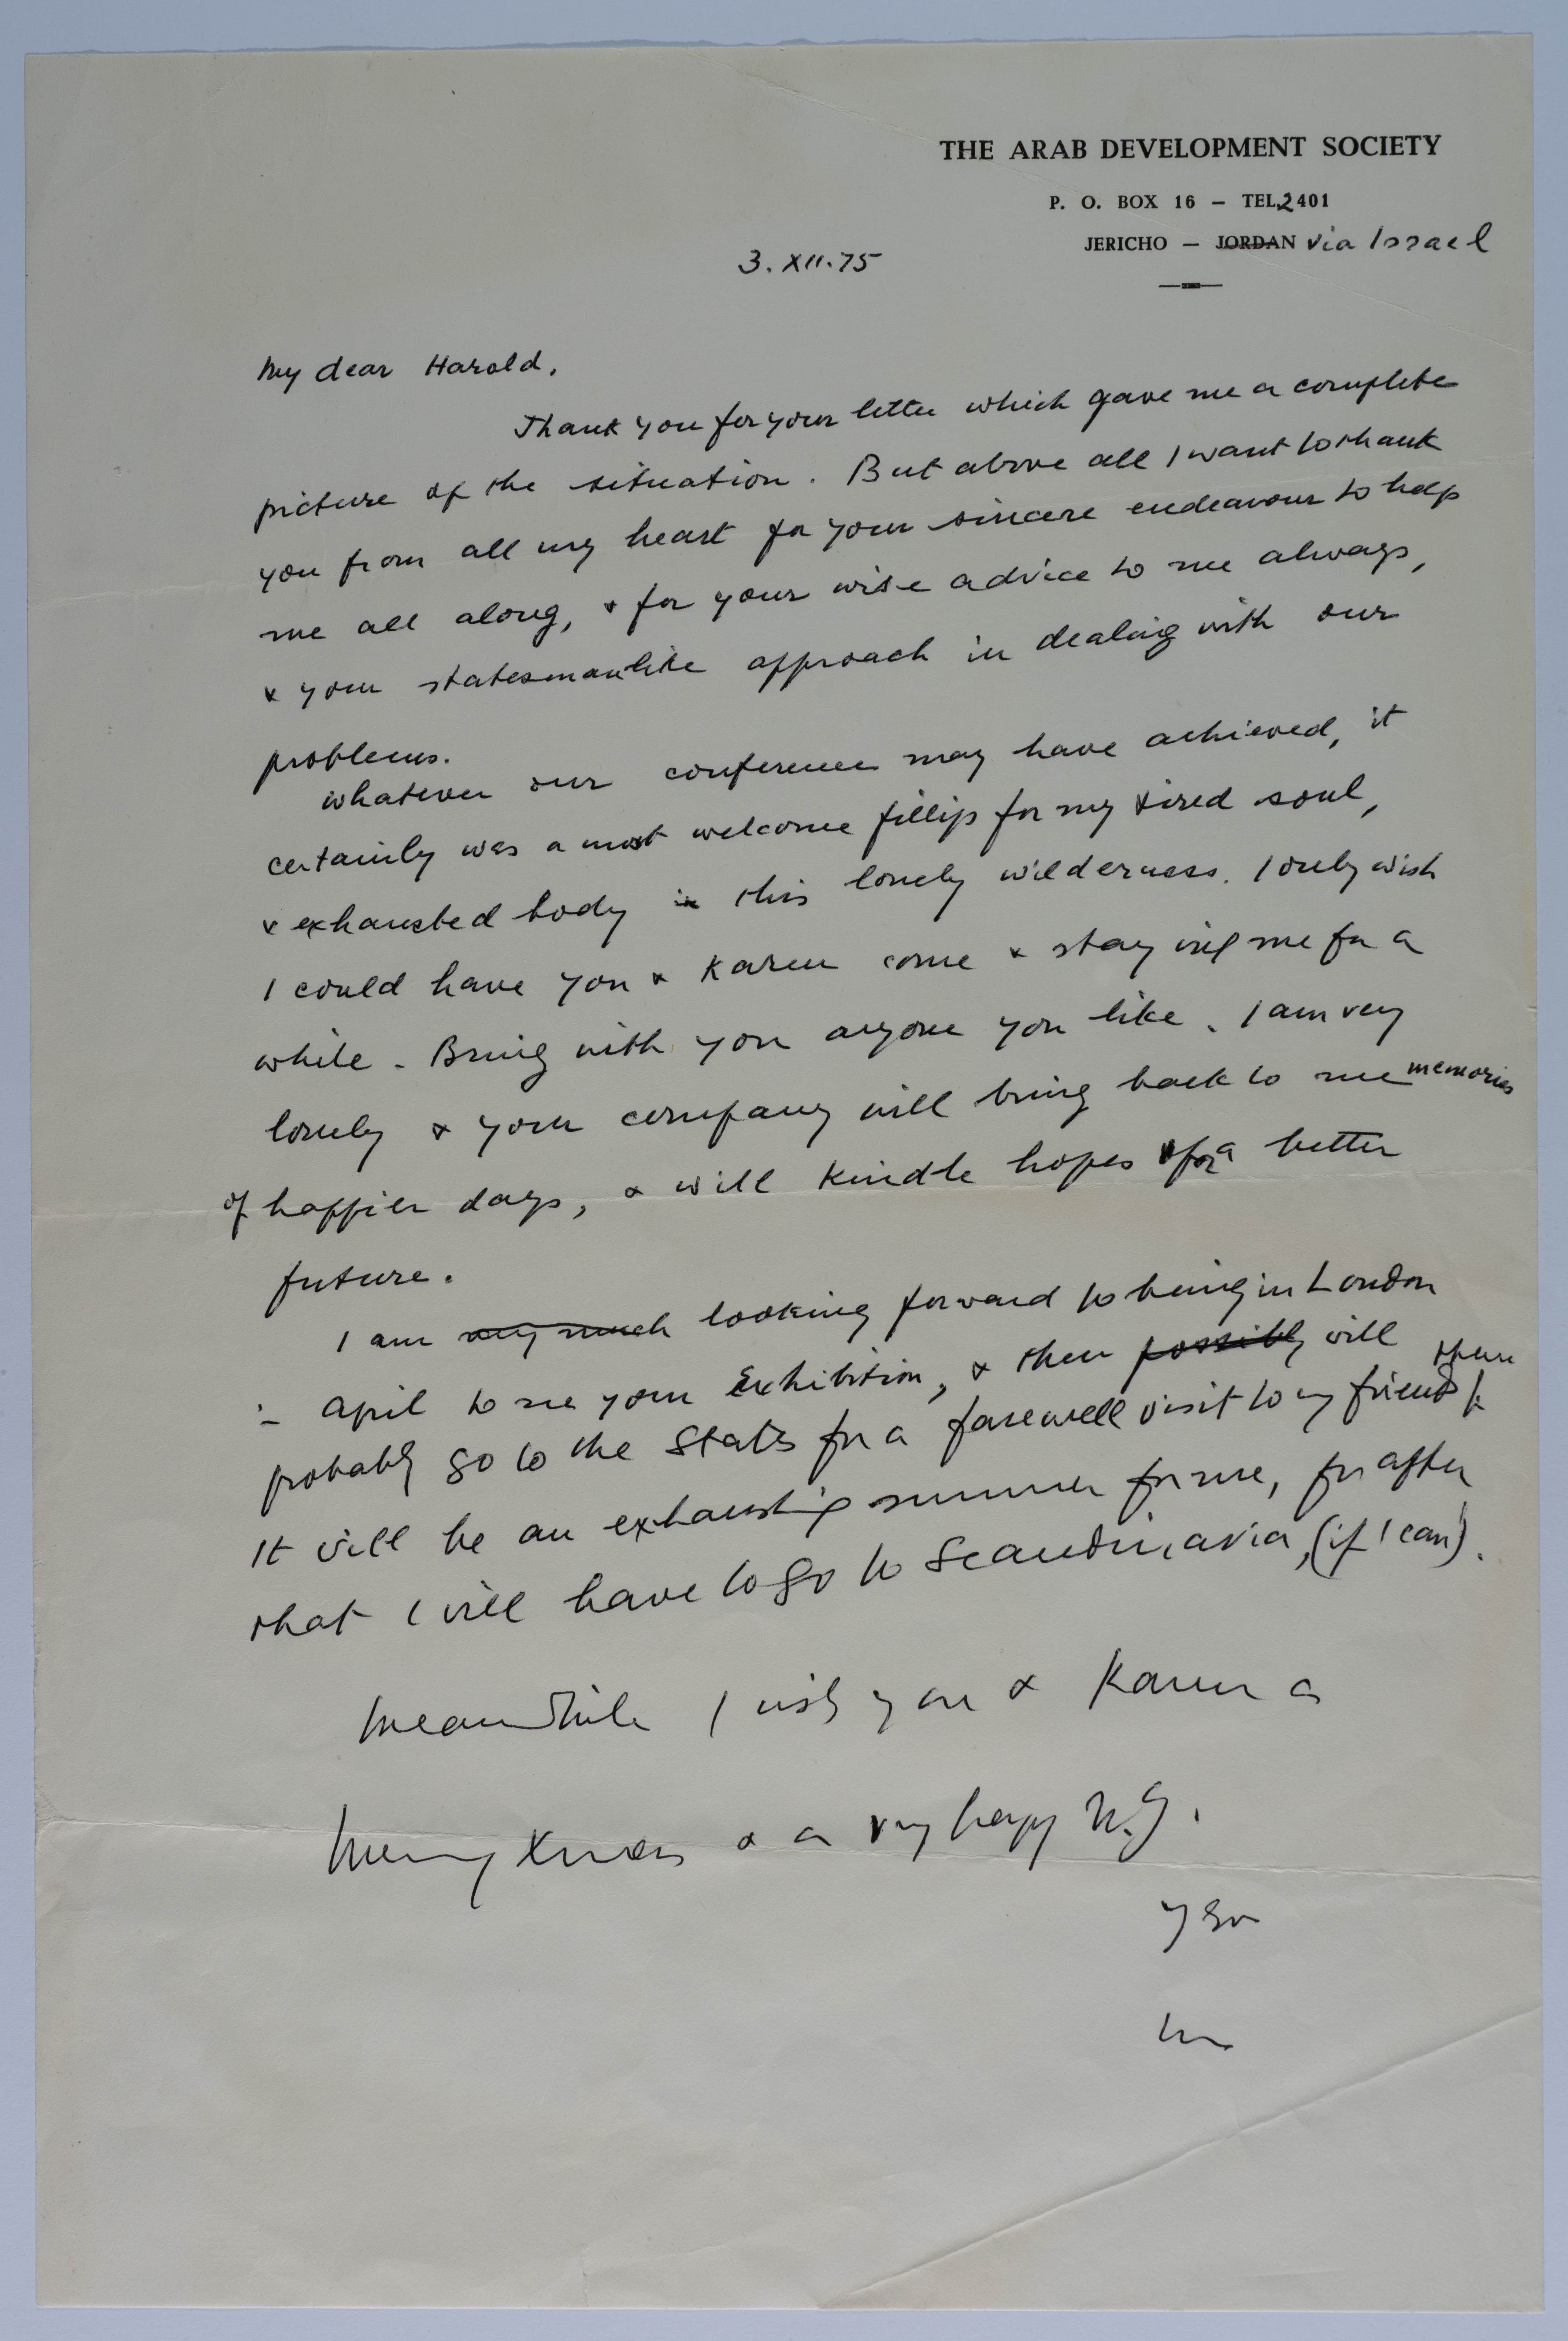 THE ARAB DEVELOPMENT SOCIETY
P. O. BOX 16 – TEL 2401
JERICHO – JORDAN via Israel
3. XII. 75
My dear Harold,
Thank you for your letter which gave me a complete
picture of the situation. But above all I want to thank
you from all my heart for your sincere endeavour to help
me all along, & for your wise advice to me always,
& your statesmanlike approach in dealing with our
problems.
Whatever our conference may have achieved, it
certainly was a most welcome fillip for my tired soul,
& exhausted body in this lonely wilderness. I only wish
I could have you & Karen come & stay with me for a
while. Bring with you anyone you like. I am very
lonely & your company will bring back to me memories
of happier days, & will kindle hopes for a better
future.
I am very much looking forward to being in London
in April to see your Exhibition, & then possibly will
probably go to the States for a farewell visit to my friends there.
It will be an exhausting summer for me, for after
that I will have to go to Scandinavia, (if I can).
Meanwhile I wish you & Karen a
Merry Xmas & a very happy N.Y.